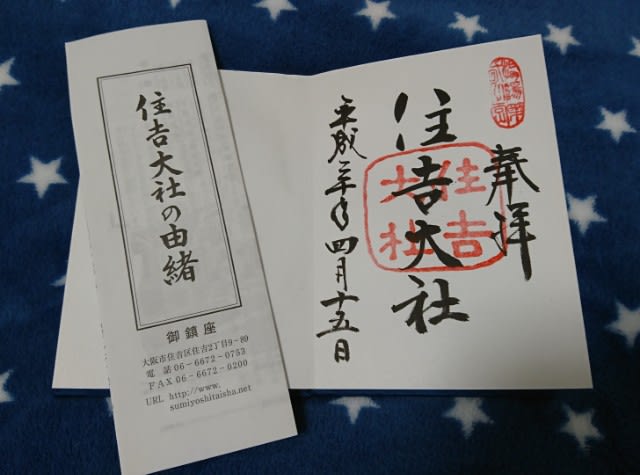 住吉大社の由緒
御鎮座
大阪市住吉区住吉2丁目9-89
電話 06-6672-0753
FAX 06-6672-0200
URL http://www.
sumiyoshitaisha.net
奉拝
住吉大社
住吉
大社
四月十五日